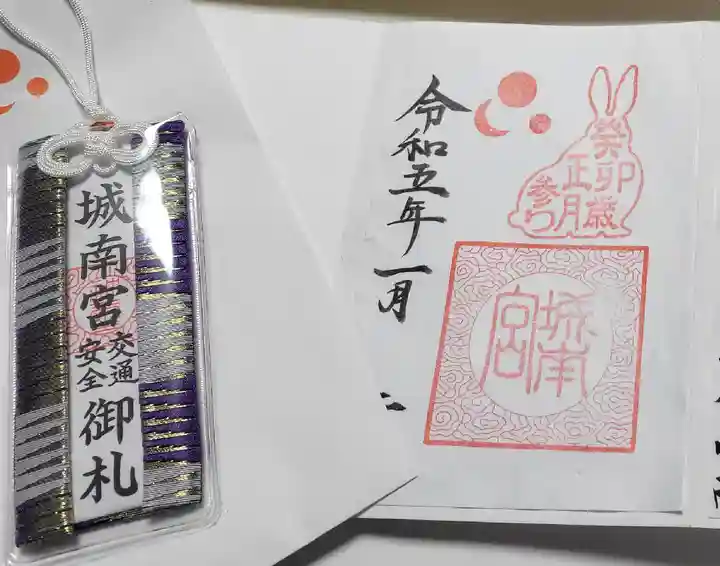 城南宮
交通
安全
御札
令和五年一月
癸卯歳
正月
参り
城南
宮